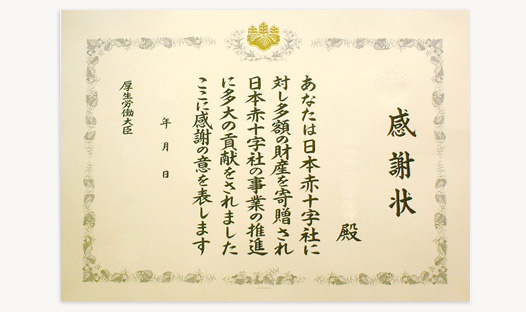 感謝状
殿
あなたは日本赤十字社に
対し多額の財産を寄贈され
日本赤十字社の事業の推進
に多大の貢献をされました
ここに感謝の意を表します
年 月 日
厚生労働大臣